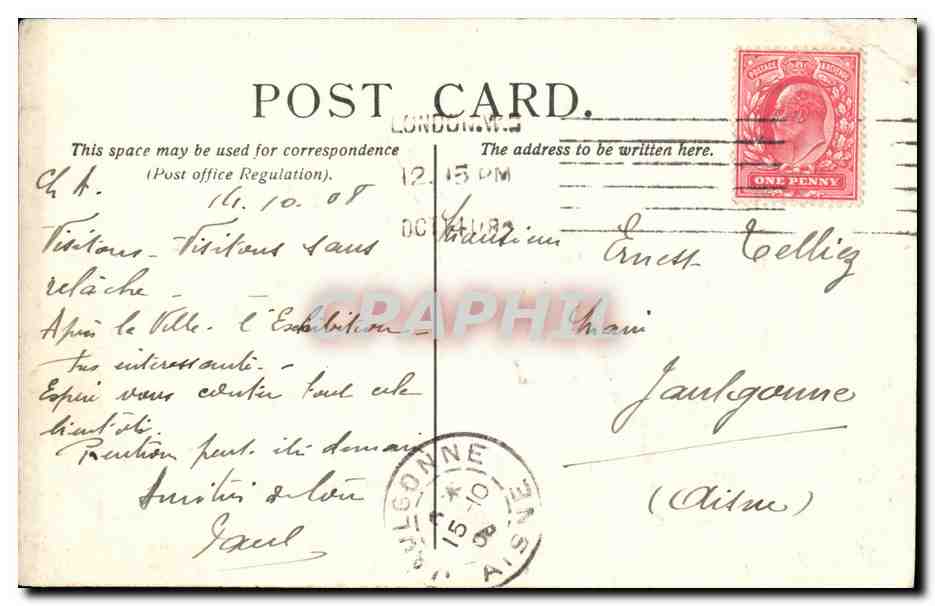 POST CARD.
LONDON.W.
12.15 PM
OCT 14
POSTAGE REVENUE
ONE PENNY
This space may be used for correspondence
(Post office Regulation).
The address to be written here.
Ch A.
14.10.08
Visitons - Visitons sans
relâche -
Après la Ville. l'Exhibition -
très intéressante. -
Espère vous conter tout cela
bientôt.
peut être demain
Amitiés de
Paul
Monsieur Ernest Tellier
Maire
Jaulgonne
(Aisne)
JAULGONNE
15-10
08
AISNE
CPAPHIL